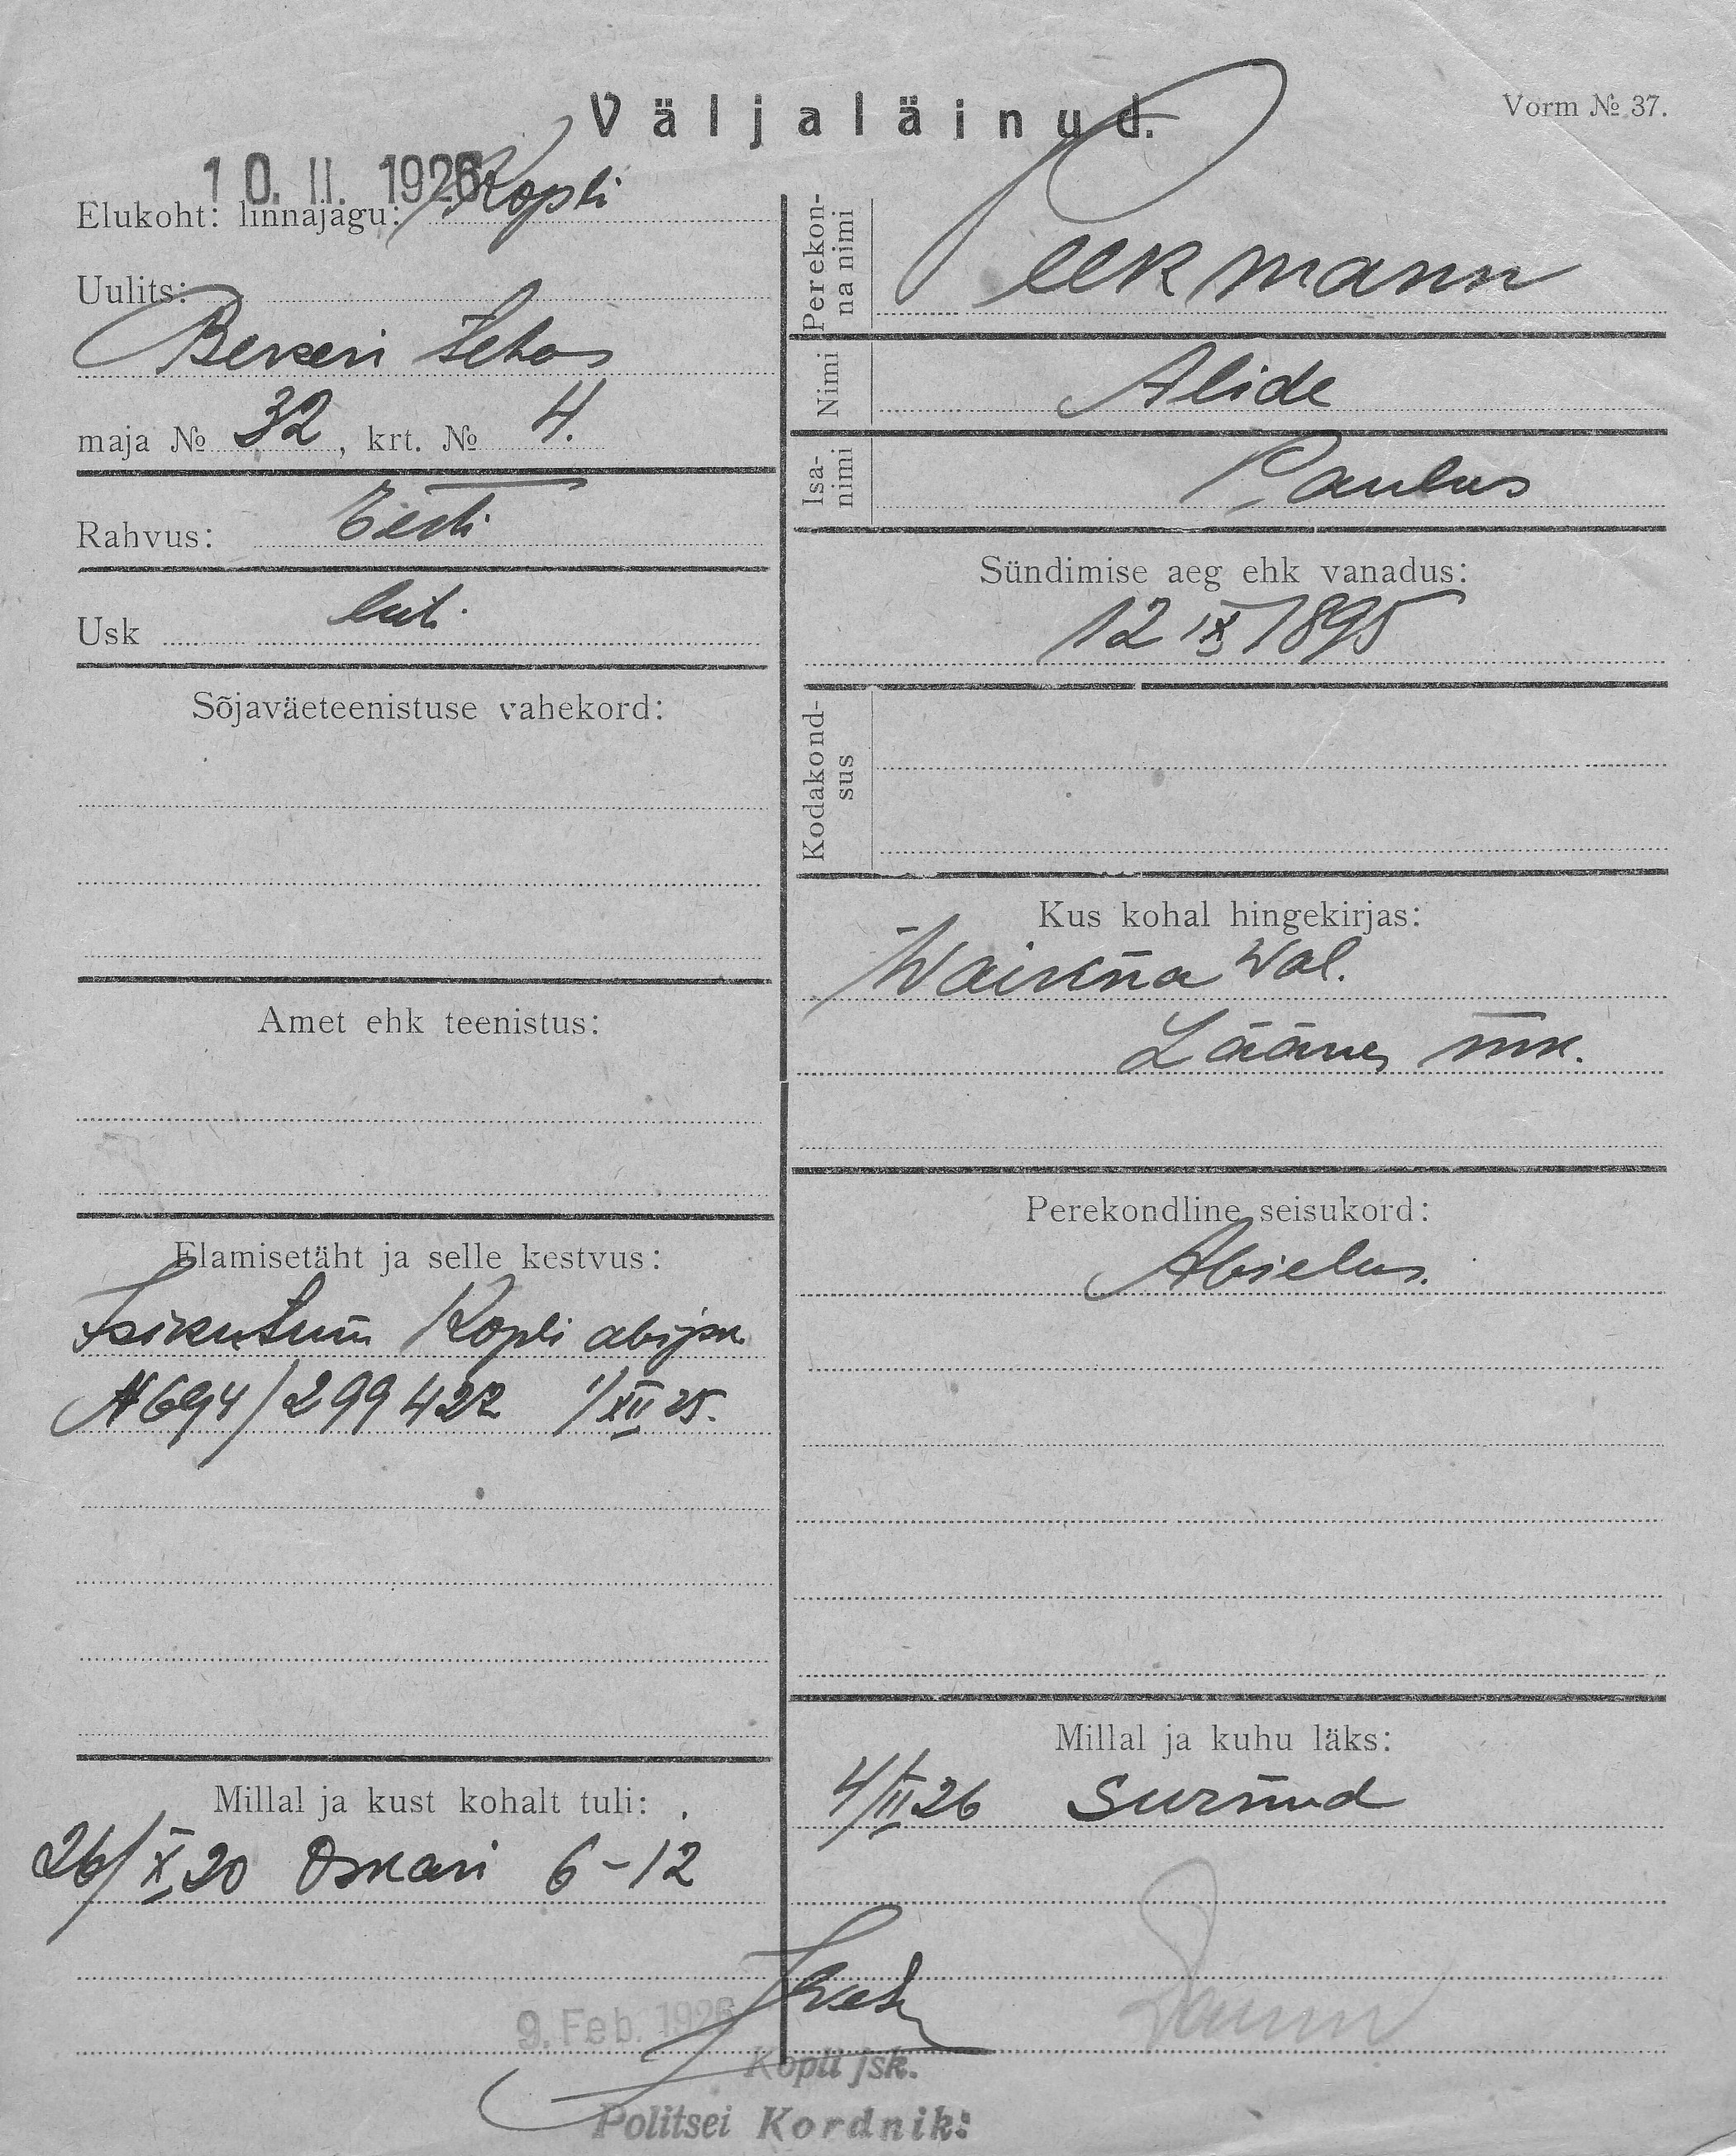 Väljaläinud.
Vorm № 37.
10. II. 1926
Elukoht: linnajagu: Kopli
Uulits:
Bekeri tehas
maja № 32, krt. № 4.
Rahvus: Eesti
Usk lut.
Sõjaväeteenistuse vahekord:
Amet ehk teenistus:
Elamisetäht ja selle kestvus:
Isikutun Kopli abijsk.
N 694/299422 1/XII 25.
Millal ja kust kohalt tuli:
26/X 20 Oskari 6-12
Perekonna nimi Peekmann
Nimi Alide
Isanimi Paulus
Sündimise aeg ehk vanadus:
12 IX 1895
Kodakondsus
Kus kohal hingekirjas:
Waikna Wal.
Lääne mk.
Perekondline seisukord:
Abielus.
Millal ja kuhu läks:
4/II 26 Surnud
9. Feb. 1926
Kopli jsk.
Politsei Kordnik: